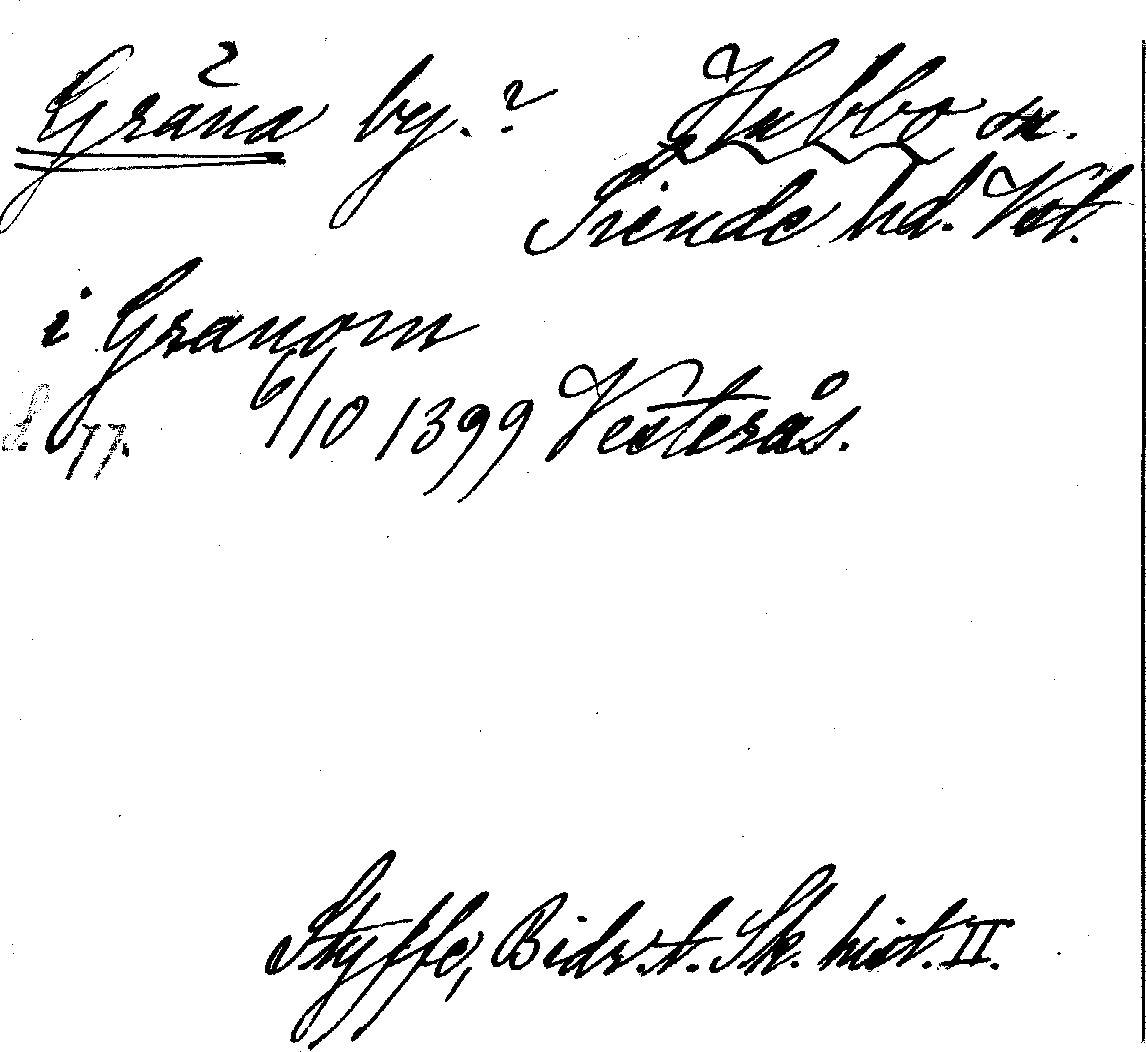 Gråna by.? Hubbo sn.
Siende hd. Vst.
i Granom
S. 77. 6/10 1399 Vesterås.
Styffe, Bidr. t. Sk. hist. II.